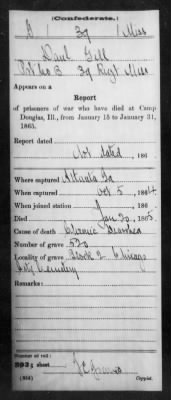 (Confederate.)
D 39 Miss
Danl. Gill
Pvt Co. B 39 Regt Miss
Appears on a
Report
of prisoners of war who have died at Camp
Douglas, Ill., from January 15 to January 31,
1865.
Report dated
Not dated, 186
Where captured Atlanta Ga
When captured Oct 5, 1864
When joined station , 186
Died Jan 20, 1865
Cause of death Chronic Diarrhea
Number of grave 520
Locality of grave Block 2 Chicago
City Cemetery
Remarks:
Number of roll:
sheet
Copyist.